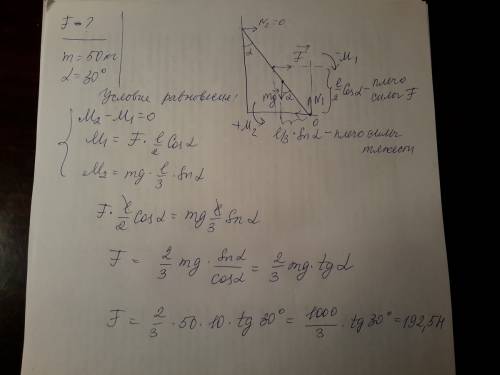 F - ?
m = 50кг
α = 30°
N₂ = 0
α
F⃗
- M₁
mg
α
N₁
ℓ/2 cosα - плечо силы F
+M₂
O
ℓ/3 · sinα - плечо силы тяжести
Условие равновесия:
M₂ - M₁ = 0
M₁ = F · ℓ/2 cosα
M₂ = mg · ℓ/3 · sinα
F · ℓ/2 cosα = mg ℓ/3 sinα
F = 2/3 mg · sinα/cosα = 2/3 mg · tgα
F = 2/3 · 50 · 10 · tg 30° = 1000/3 · tg 30° = 192,5Н